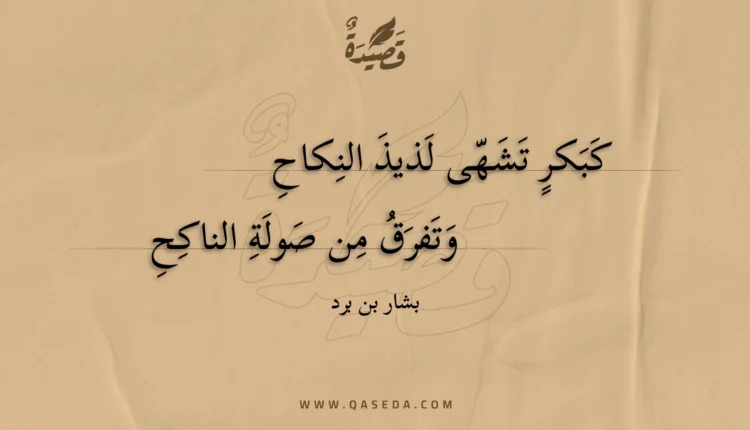 قَصِيدَةٌ
كَبَكرٍ تَشَهّى لَذيذَ النِكاحِ
وَتَفرَقُ مِن صَولَةِ الناكِحِ
بشار بن برد
WWW.QASEDA.COM